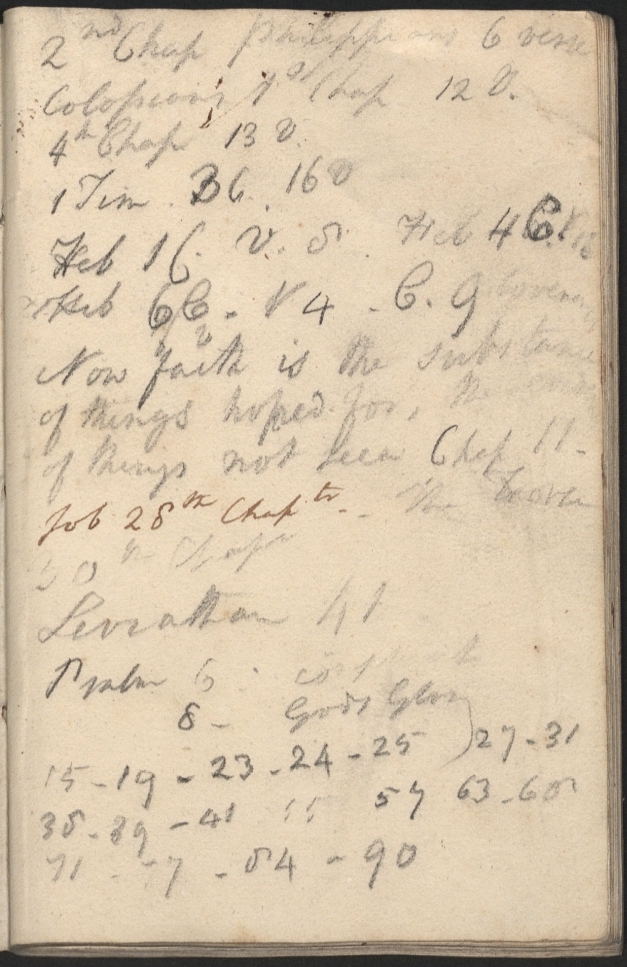 2nd Chap Philippians 6 verse
Colossians 1st Chap 12 V.
4th Chap 13 V
1 Tim. 3 C. 16 V
Heb 1 C. V. 8. Heb 4 C.
Heb 6 C - V 4 - C. 9
Now faith is the substance
of things hoped for, the
of things not seen Chap 11-
Job 28th Chaptr. - The
30th Chapr
Leviathan 41
Psalm 6
8 - Gods Glory
15 - 19 - 23 - 24 - 25 ) 27 - 31
38 - 39 - 41 55 57 63 - 68
71 - 77 - 84 - 90